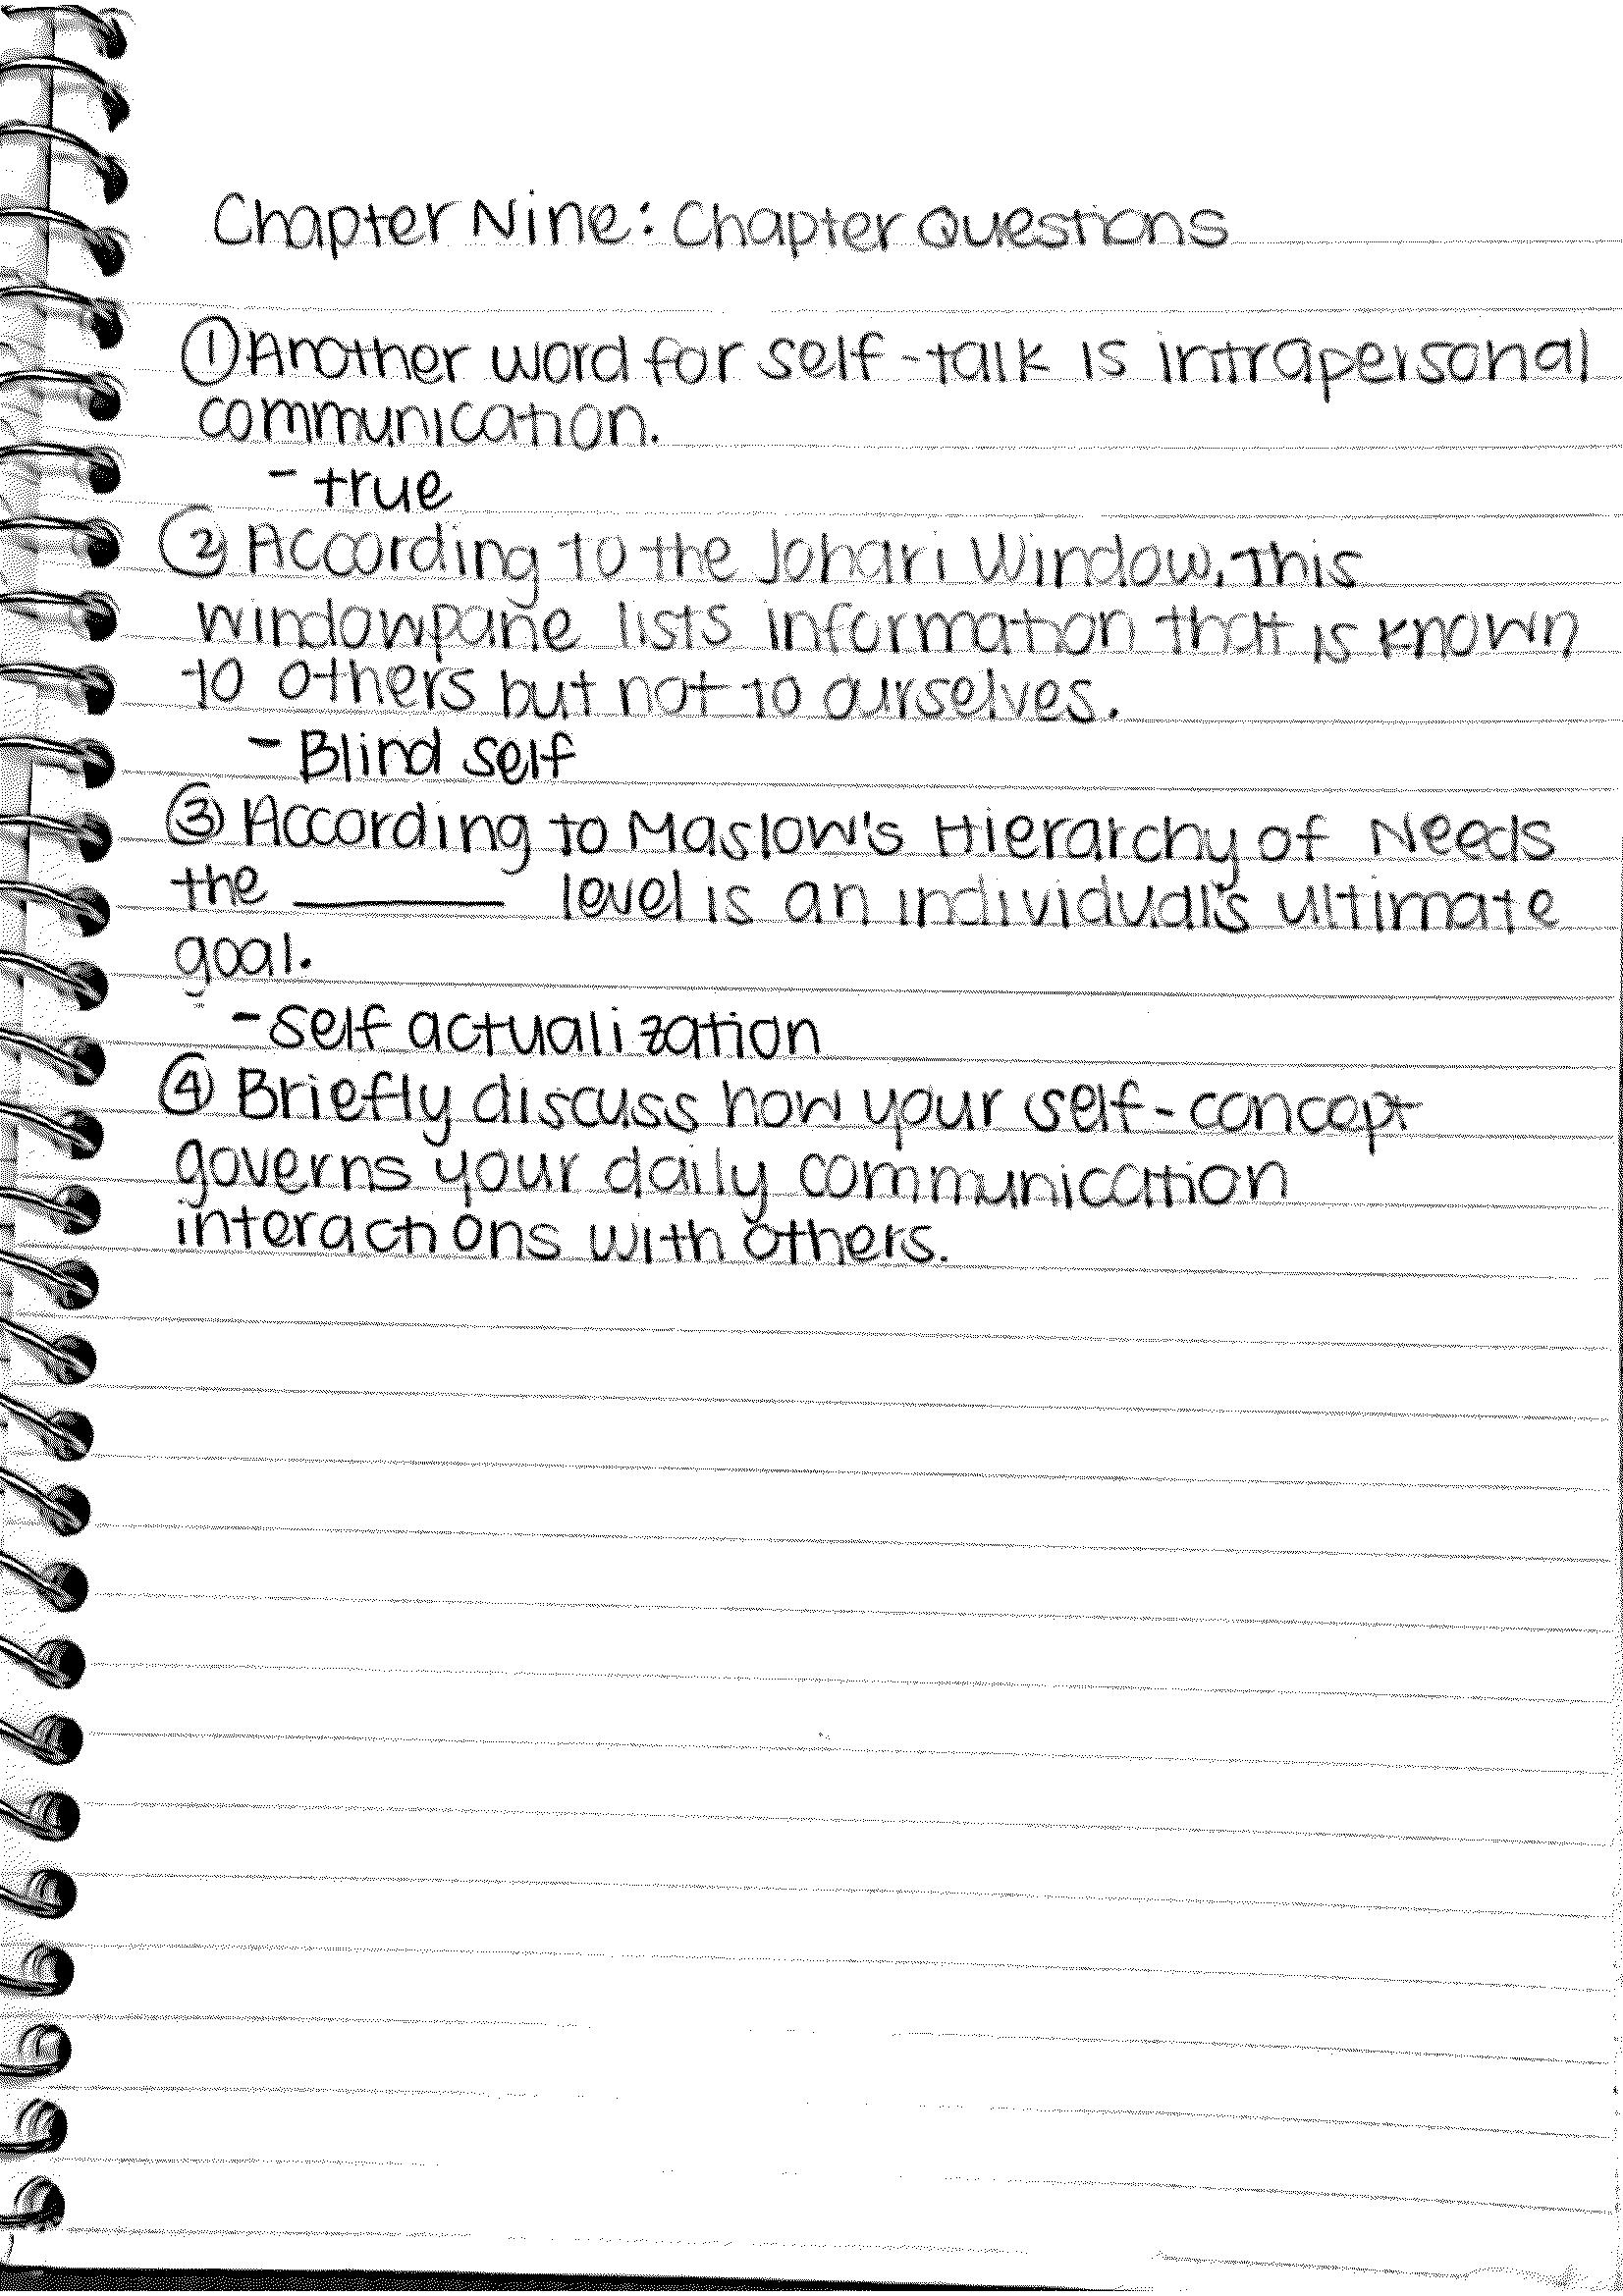 Chapter Nine: Chapter Questions
① Another word for self-talk is intrapersonal
communication.
- true
② According to the Johari Window, This
windowpane lists information that is known
to others but not to ourselves.
- Blind self
③ According to Maslow's Hierarchy of Needs
the ______ level is an individual's ultimate
goal.
- self actualization
④ Briefly discuss how your self-concept
governs your daily communication
interactions with others.